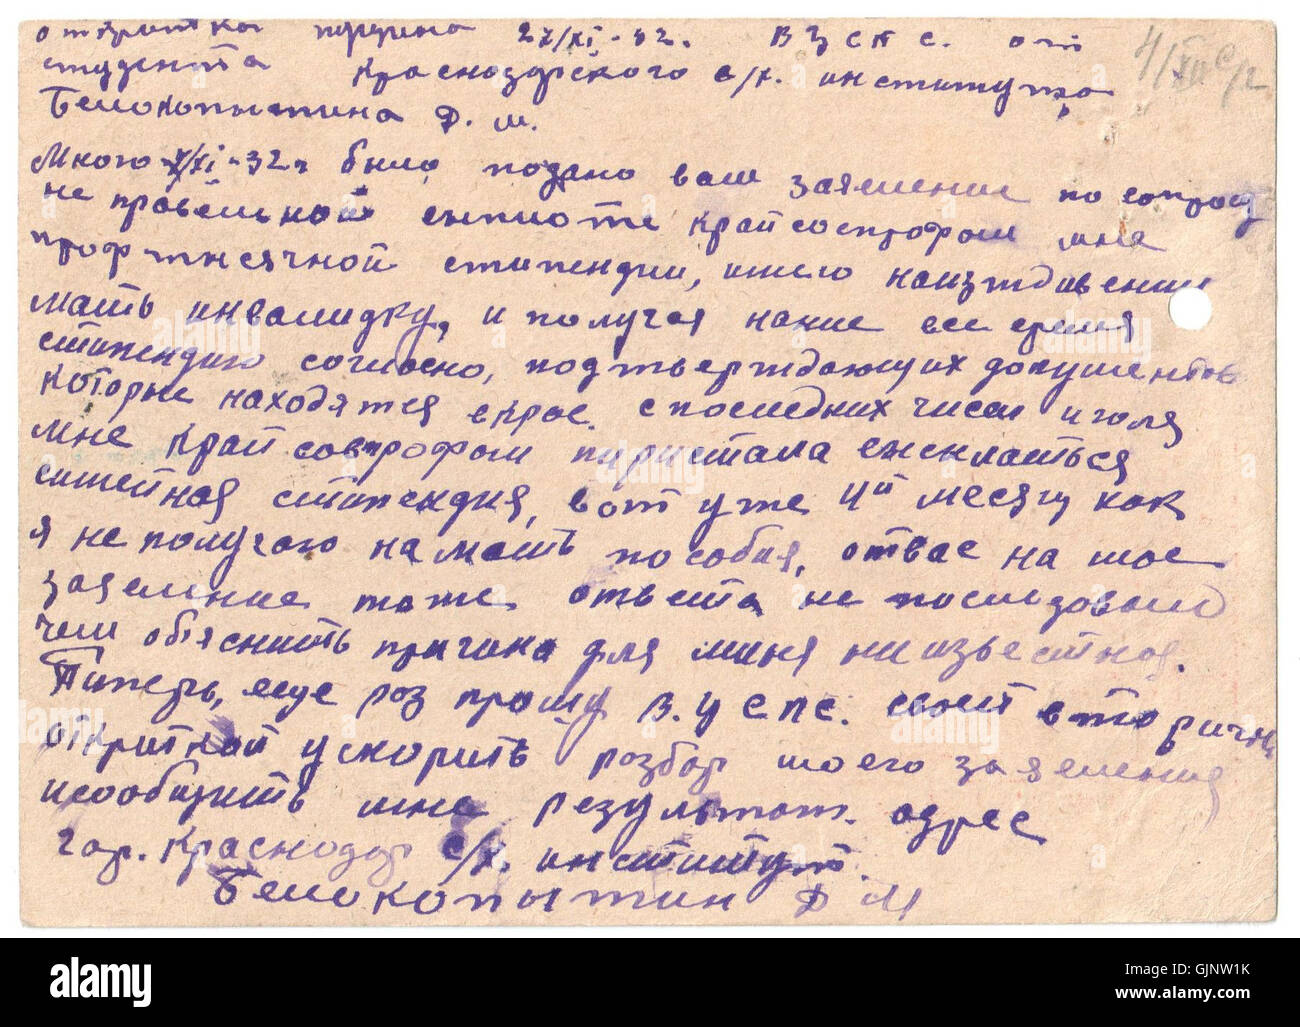 открытка первина 27/XI-32. ВЦСПС. от
студента Краснодарского с/х. института
Белокопытина Д. М.
4/XII с/г
Мною X/XI-32г было подано вам заявление по вопросу
не правельной выплоте крайсовпрофом мне
профтысячной стипендии, имею на иждивении
мать инвалидку, и получая на ние все время
стипендию согласно, подтверждающих документов
которые находятся в крае. с последних чисел июля
мне крайсовпрофом перистала высылаться
симейная стипендия, вот уже 4й месяц как
я не получаю на мать пособия, от вас на мое
заявление тоже ответа не последовало
чем объяснить причина для меня ниизвестная.
Типерь, еще раз прошу В.ЦСПС. своей вторичной
открыткой ускорить разбор моего заявления
исообщить мне результат. адрес
гор. Краснодар с/х. институт.
Белокопытин Д М
alamy
Image ID: GJNW1K
www.alamy.com